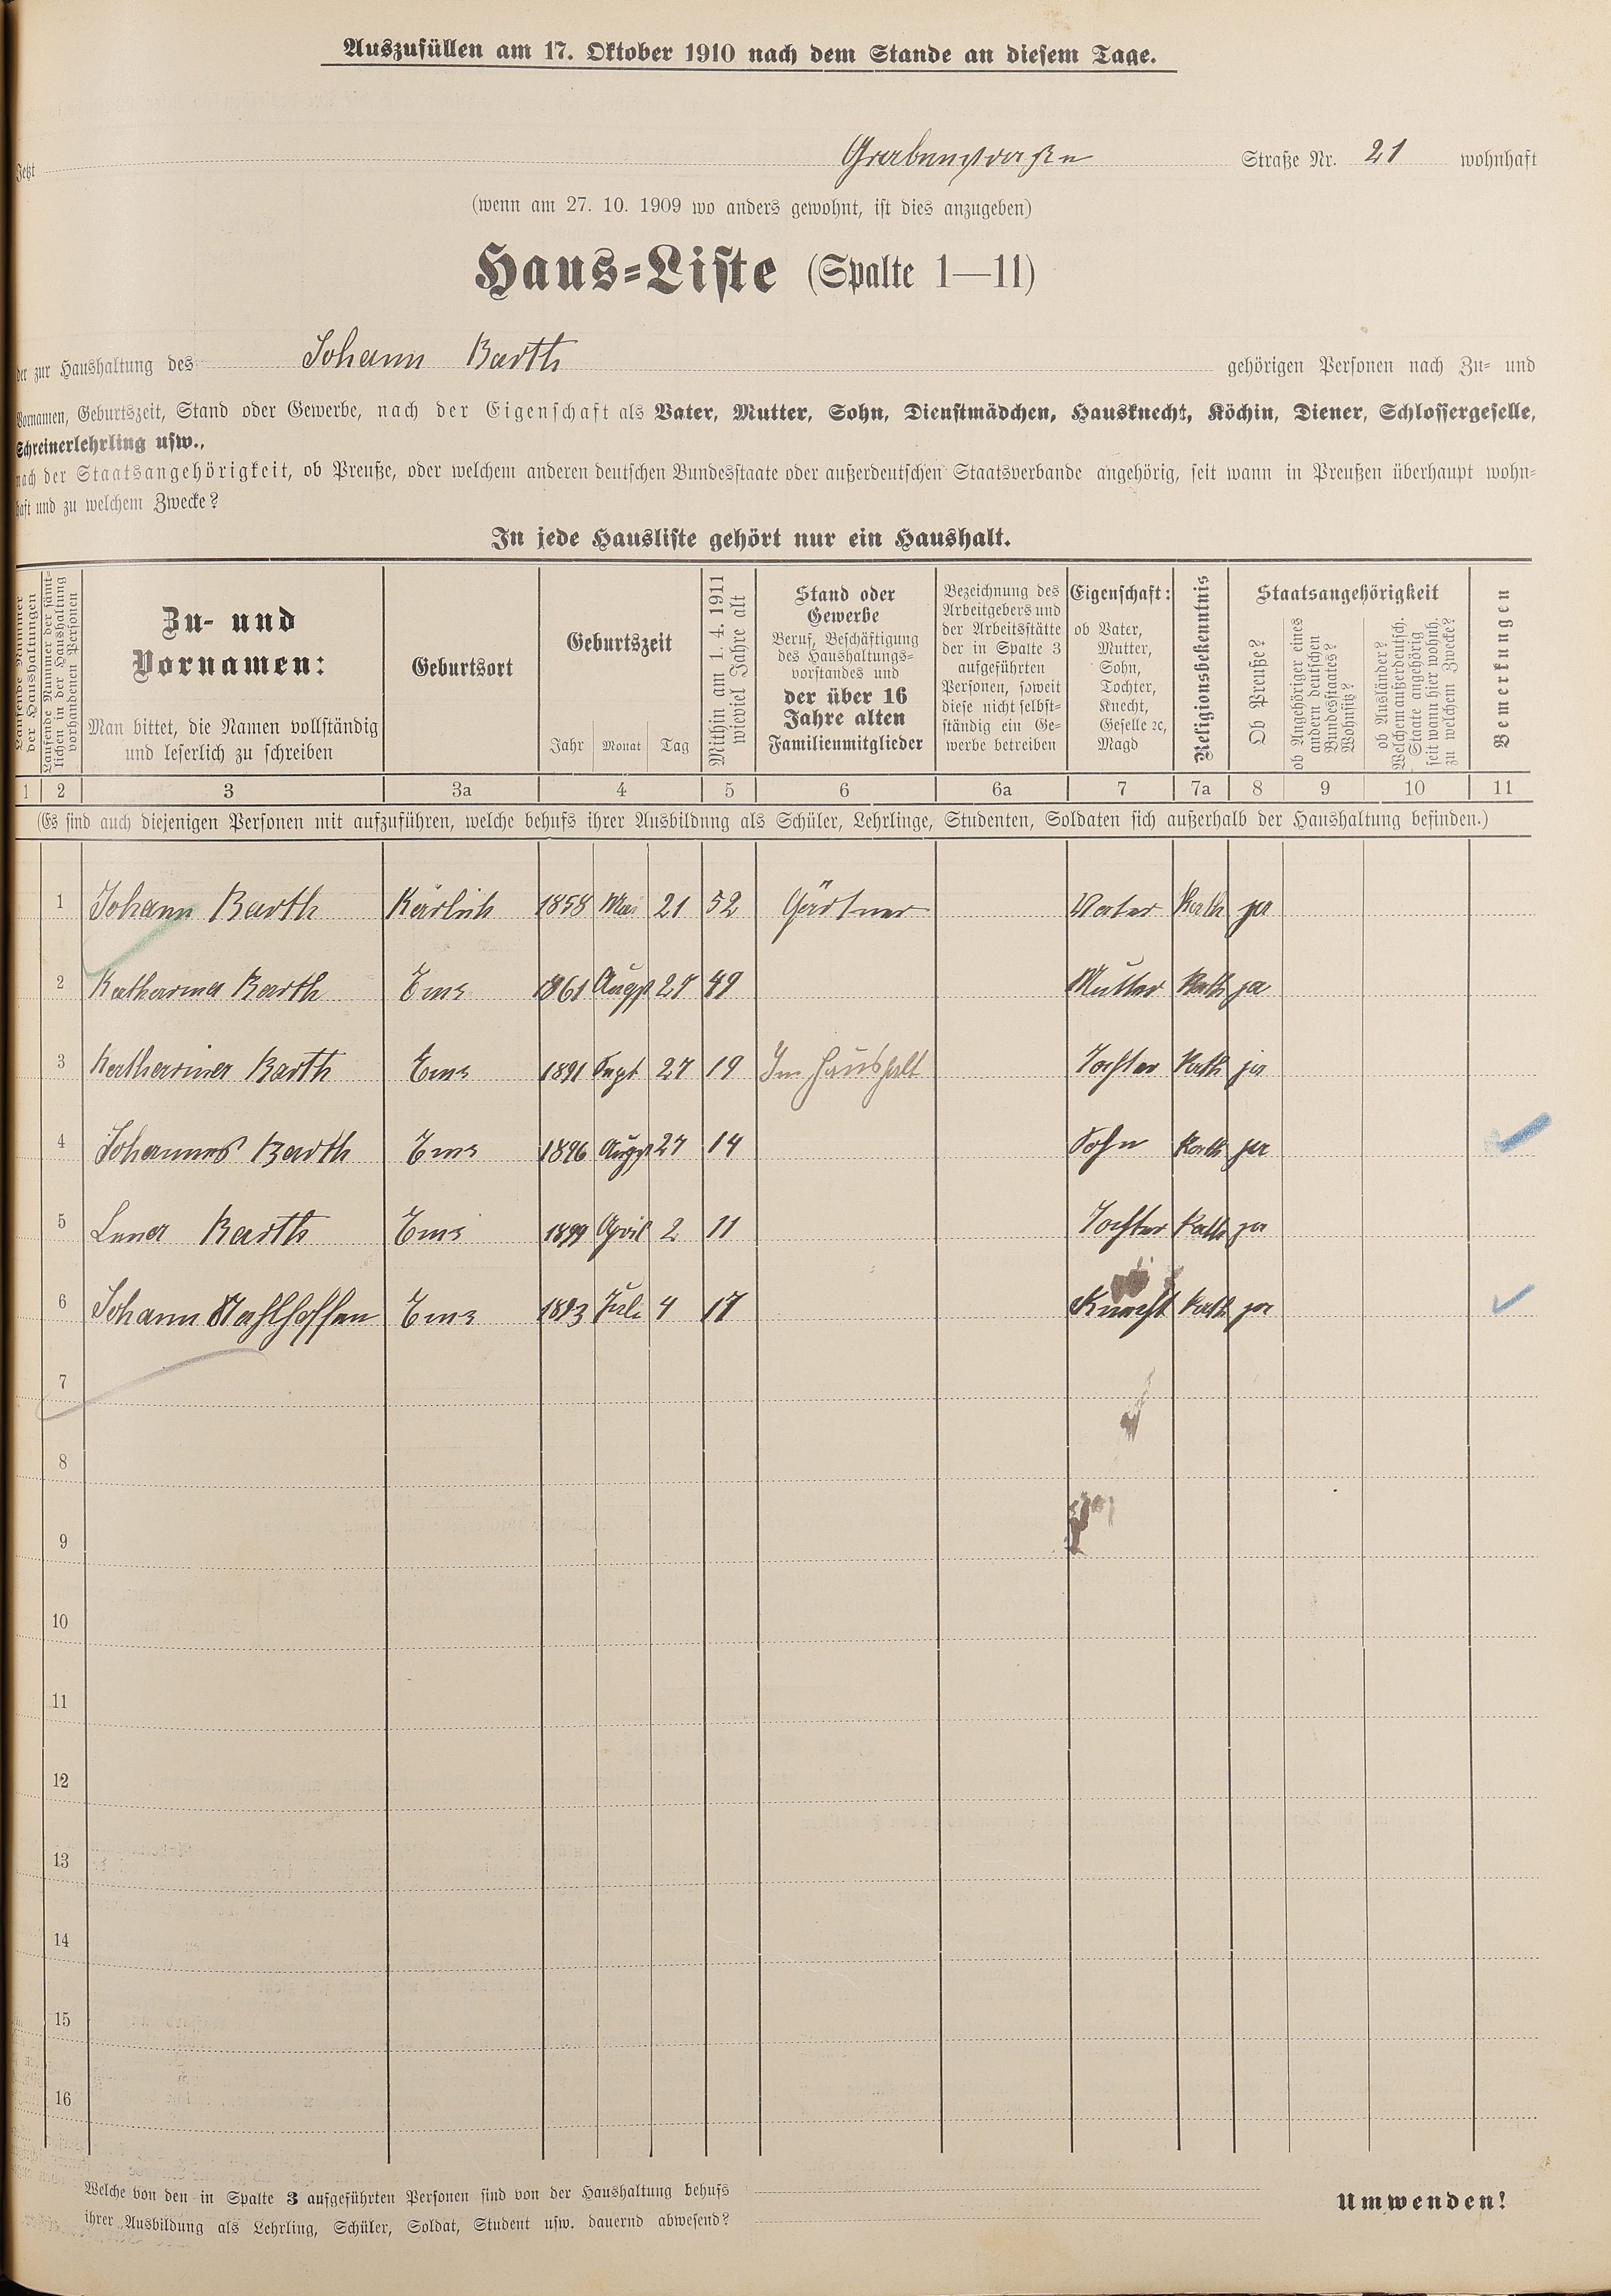 Auszufüllen am 17. Oktober 1910 nach dem Stande an diesem Tage.
Jetzt Grabenstraße Straße Nr. 21 wohnhaft
(wenn am 27. 10. 1909 wo anders gewohnt, ist dies anzugeben)
Haus=Liste (Spalte 1—11)
der zur Haushaltung des Johann Barth gehörigen Personen nach Zu= und
Vornamen, Geburtszeit, Stand oder Gewerbe, nach der Eigenschaft als Vater, Mutter, Sohn, Dienstmädchen, Hausknecht, Köchin, Diener, Schlossergeselle,
Schreinerlehrling usw.,
nach der Staatsangehörigkeit, ob Preuße, oder welchem anderen deutschen Bundesstaate oder außerdeutschen Staatsverbande angehörig, seit wann in Preußen überhaupt wohn=
haft und zu welchem Zwecke?
In jede Hausliste gehört nur ein Haushalt.
Laufende Nummer
der Haushaltungen
Laufende Nummer der sämt=
lichen in der Haushaltung
vorhandenen Personen
Zu- und
Vornamen:
Man bittet, die Namen vollständig
und leserlich zu schreiben
Geburtsort
Geburtszeit
Jahr Monat Tag
Mithin am 1. 4. 1911
wieviel Jahre alt
Stand oder
Gewerbe
Beruf, Beschäftigung
des Haushaltungs=
vorstandes und
der über 16
Jahre alten
Familienmitglieder
Bezeichnung des
Arbeitgebers und
der Arbeitsstätte
der in Spalte 3
aufgeführten
Personen, soweit
diese nicht selbst=
ständig ein Ge=
werbe betreiben
Eigenschaft:
ob Vater,
Mutter,
Sohn,
Tochter,
Knecht,
Geselle ꝛc,
Magd
Religionsbekenntnis
Staatsangehörigkeit
Ob Preuße?
ob Angehöriger eines
andern deutschen
Bundesstaates?
Wohnsitz?
ob Ausländer?
Welchem außerdeutsch.
Staate angehörig
seit wann hier wohnh.
zu welchem Zwecke?
Bemerkungen
1 2 3 3a 4 5 6 6a 7 7a 8 9 10 11
(Es sind auch diejenigen Personen mit aufzuführen, welche behufs ihrer Ausbildung als Schüler, Lehrlinge, Studenten, Soldaten sich außerhalb der Haushaltung befinden.)
1 Johann Barth Kärlich 1858 Mai 21 52 Gärtner Vater Kath ja
2 Katharina Barth Ems 1861 Augst 49 Mutter Kath ja
3 Katharina Barth Ems 1891 Sept 27 19 Im Haushalt Tochter Kath ja
4 Johannes Barth Ems 1896 Augst 27 14 Sohn Kath ja
5 Lena Barth Ems 1899 April 2 11 Tochter Kath ja
6 Johann Stahlhoffen Ems 1893 Juli 4 17 Knecht Kath ja
7
8
9
10
11
12
13
14
15
16
Welche von den in Spalte 3 aufgeführten Personen sind von der Haushaltung behufs
ihrer Ausbildung als Lehrling, Schüler, Soldat, Student usw. dauernd abwesend?
Umwenden!